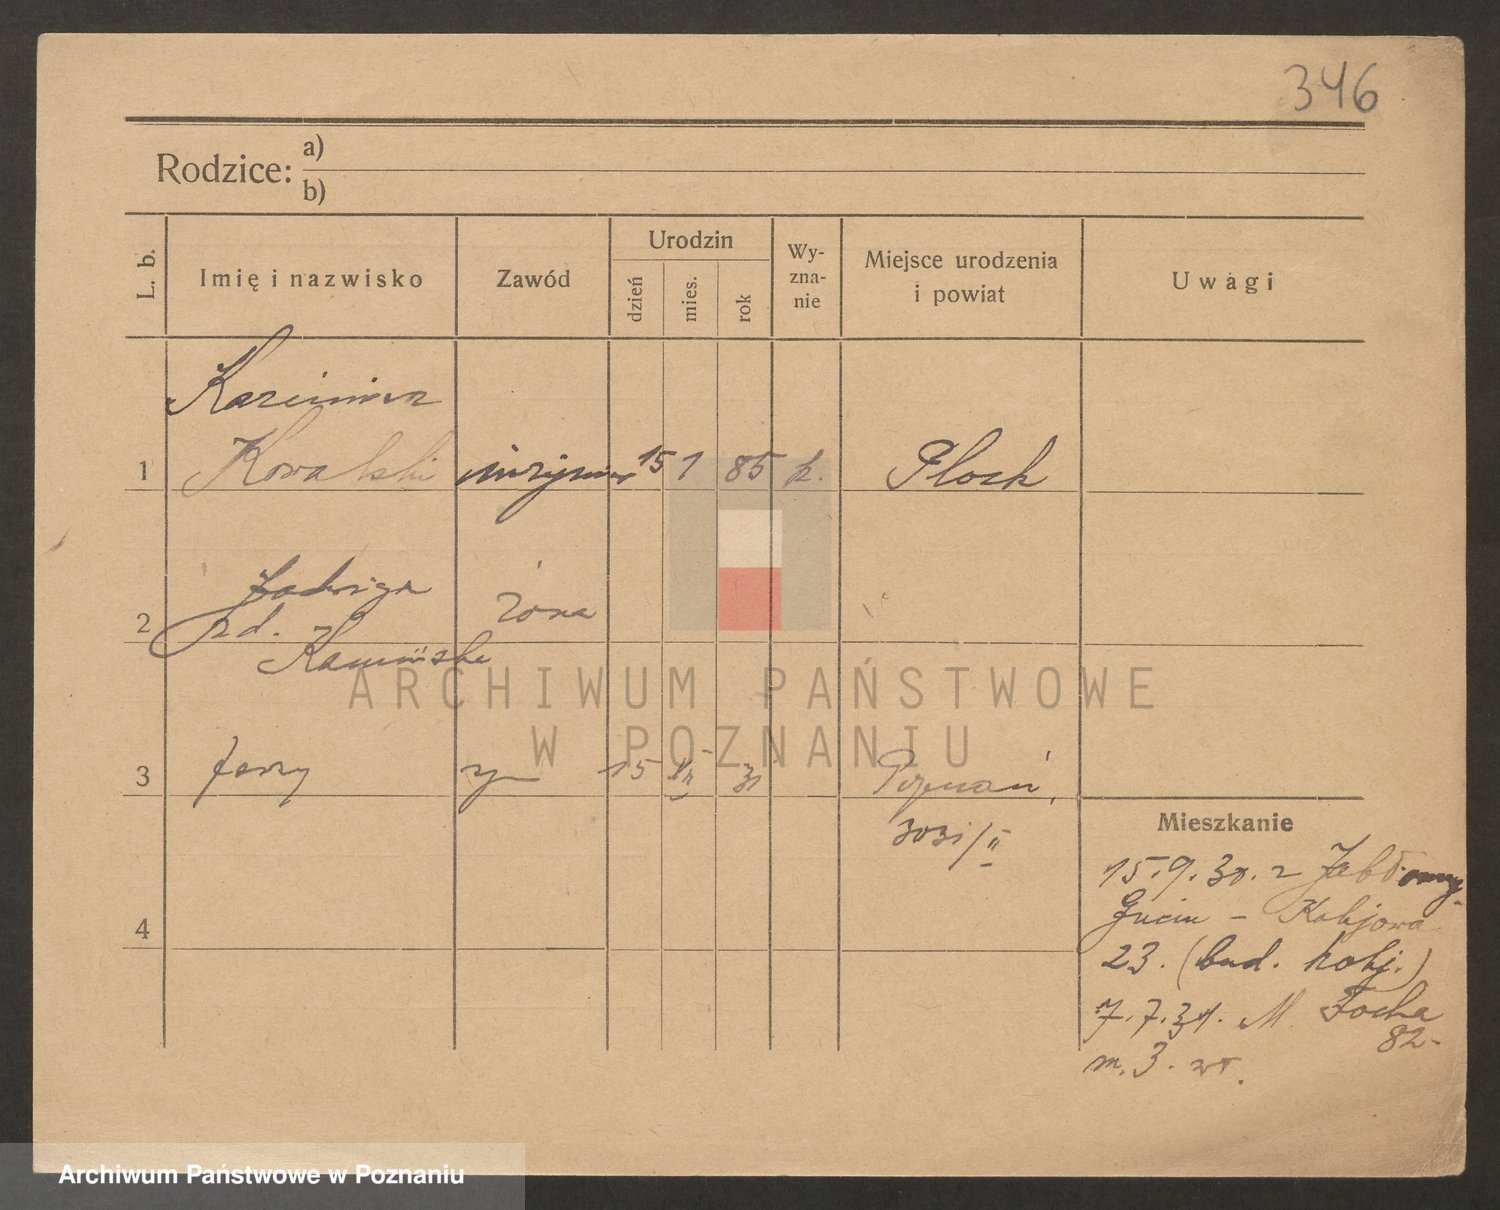 346
Rodzice:
a)
b)
L. b.
Imię i nazwisko
Zawód
Urodzin
dzień
mies.
rok
Wy-
zna-
nie
Miejsce urodzenia
i powiat
Uwagi
Kazimierz
1 Kowalski inżynier 15 1 85 k. Płock
Jadwiga
2 zd. żona
Kamińska
ARCHIWUM PAŃSTWOWE
W POZNANIU
3 Jerzy 15 31 Poznań,
3031/II
4
Mieszkanie
15.9.30. z
- Kolejowa
23. (bud. kolej.)
7.7.31. M. Focha
82-
m. 3.
Archiwum Państwowe w Poznaniu